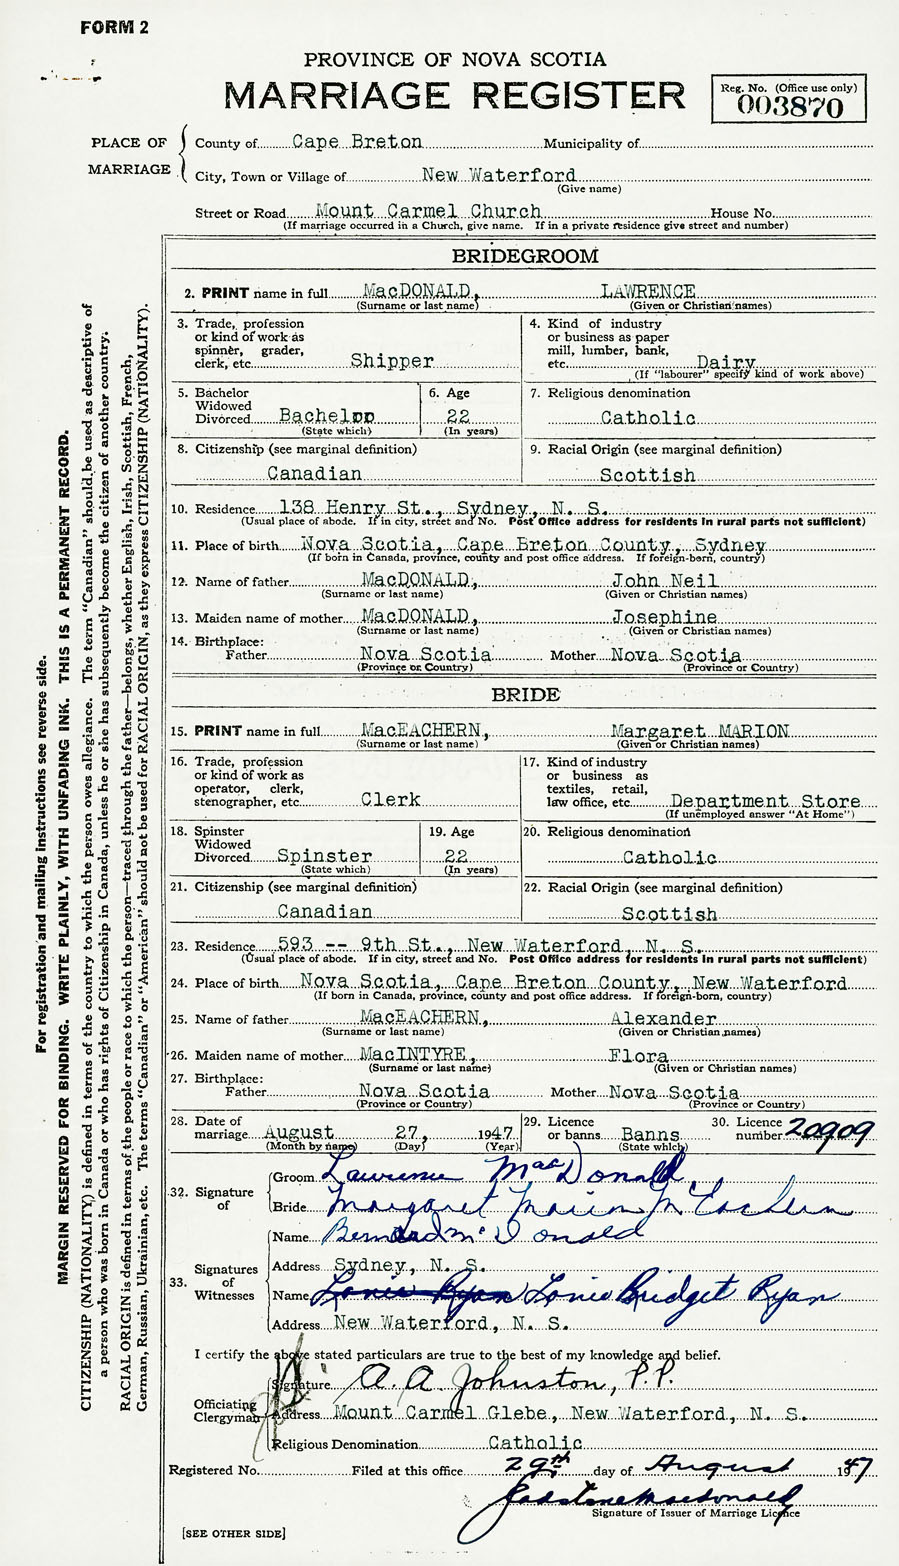 FORM 2
PROVINCE OF NOVA SCOTIA
MARRIAGE REGISTER
Reg. No. (Office use only)
003870
PLACE OF MARRIAGE
County of Cape Breton Municipality of
City, Town or Village of New Waterford
(Give name)
Street or Road Mount Carmel Church House No.
(If marriage occurred in a Church, give name. If in a private residence give street and number)
BRIDEGROOM
2. PRINT name in full MacDONALD, LAWRENCE
(Surname or last name) (Given or Christian names)
3. Trade, profession
or kind of work as
spinner, grader,
clerk, etc. Shipper
4. Kind of industry
or business as paper
mill, lumber, bank,
etc. Dairy
(If "labourer" specify kind of work above)
5. Bachelor
Widowed
Divorced Bachelor
(State which)
6. Age
22
(In years)
7. Religious denomination
Catholic
8. Citizenship (see marginal definition)
Canadian
9. Racial Origin (see marginal definition)
Scottish
10. Residence 138 Henry St., Sydney, N. S.
(Usual place of abode. If in city, street and No. Post Office address for residents in rural parts not sufficient)
11. Place of birth Nova Scotia, Cape Breton County, Sydney
(If born in Canada, province, county and post office address. If foreign-born, country)
12. Name of father MacDONALD, John Neil
(Surname or last name) (Given or Christian names)
13. Maiden name of mother MacDONALD, Josephine
(Surname or last name) (Given or Christian names)
14. Birthplace:
Father Nova Scotia Mother Nova Scotia
(Province or Country) (Province or Country)
BRIDE
15. PRINT name in full MacEACHERN, Margaret MARION
(Surname or last name) (Given or Christian names)
16. Trade, profession
or kind of work as
operator, clerk,
stenographer, etc. Clerk
17. Kind of industry
or business as
textiles, retail,
law office, etc. Department Store
(If unemployed answer "At Home")
18. Spinster
Widowed
Divorced Spinster
(State which)
19. Age
22
(In years)
20. Religious denomination
Catholic
21. Citizenship (see marginal definition)
Canadian
22. Racial Origin (see marginal definition)
Scottish
23. Residence 593 -- 9th St., New Waterford, N. S.
(Usual place of abode. If in city, street and No. Post Office address for residents in rural parts not sufficient)
24. Place of birth Nova Scotia, Cape Breton County, New Waterford
(If born in Canada, province, county and post office address. If foreign-born, country)
25. Name of father MacEACHERN, Alexander
(Surname or last name) (Given or Christian names)
26. Maiden name of mother MacINTYRE, Flora
(Surname or last name) (Given or Christian names)
27. Birthplace:
Father Nova Scotia Mother Nova Scotia
(Province or Country) (Province or Country)
28. Date of
marriage August 27, 1947
(Month by name) (Day) (Year)
29. Licence
or banns Banns
(State which)
30. Licence
number 20909
32. Signature of
Groom Lawrence MacDonald
Bride Margaret Marion McEachern
33. Signatures of Witnesses
Name Bernard McDonald
Address Sydney, N. S.
Name Lonie Ryan Lonie Bridget Ryan
Address New Waterford, N. S.
I certify the above stated particulars are true to the best of my knowledge and belief.
Officiating Clergyman
Signature A. A. Johnston, P.P.
Address Mount Carmel Glebe, New Waterford, N. S.
Religious Denomination Catholic
Registered No. Filed at this office 29th day of August 1947
Macdonald
Signature of Issuer of Marriage Licence
[SEE OTHER SIDE]
For registration and mailing instructions see reverse side.
MARGIN RESERVED FOR BINDING. WRITE PLAINLY, WITH UNFADING INK. THIS IS A PERMANENT RECORD.
CITIZENSHIP (NATIONALITY) is defined in terms of the country to which the person owes allegiance. The term "Canadian" should be used as descriptive of
a person who was born in Canada or who has rights of Citizenship in Canada, unless he or she has subsequently become the citizen of another country.
RACIAL ORIGIN is defined in terms of the people or race to which the person—traced through the father—belongs, whether English, Irish, Scottish, French,
German, Russian, Ukrainian, etc. The terms "Canadian" or "American" should not be used for RACIAL ORIGIN, as they express CITIZENSHIP (NATIONALITY).